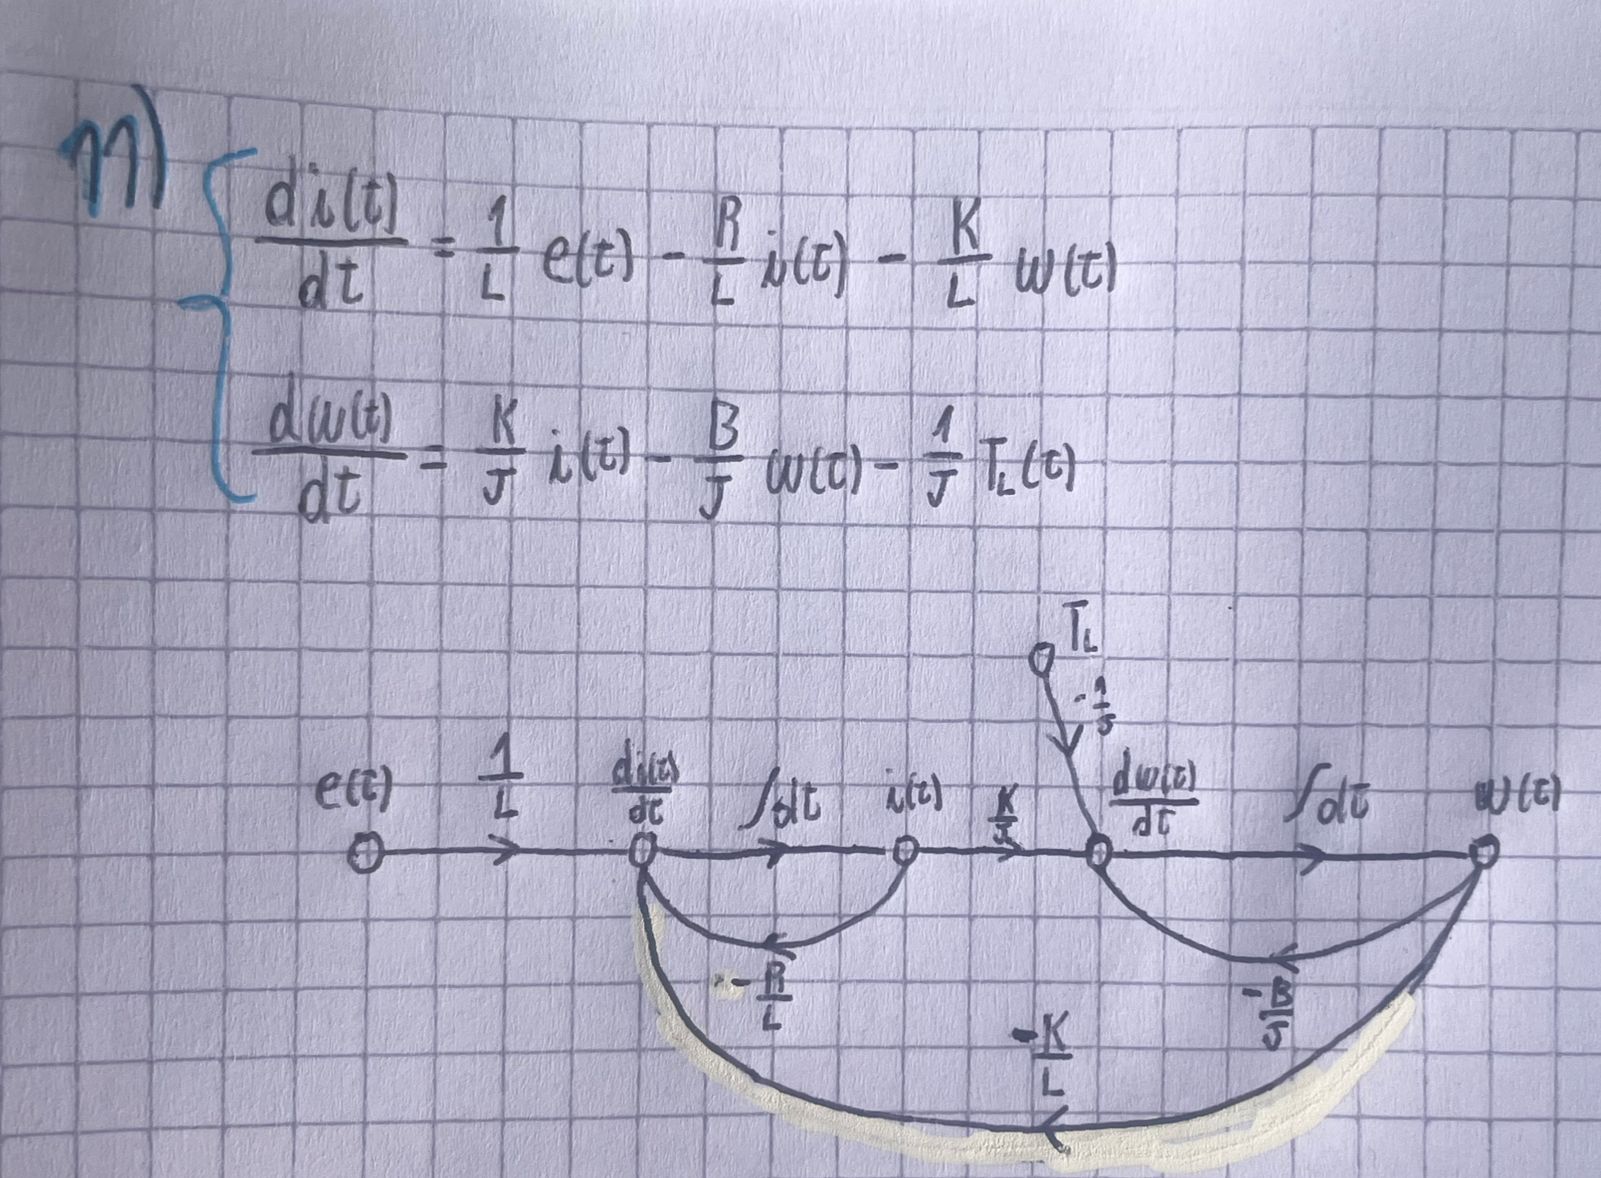 m)
di(t)/dt = 1/L e(t) - R/L i(t) - K/L w(t)
dw(t)/dt = K/J i(t) - B/J w(t) - 1/J T_L(t)
T_L
-1/J
e(t) 1/L di(t)/dt ∫dt i(t) K/J dw(t)/dt ∫dt w(t)
-R/L -B/J
-K/L